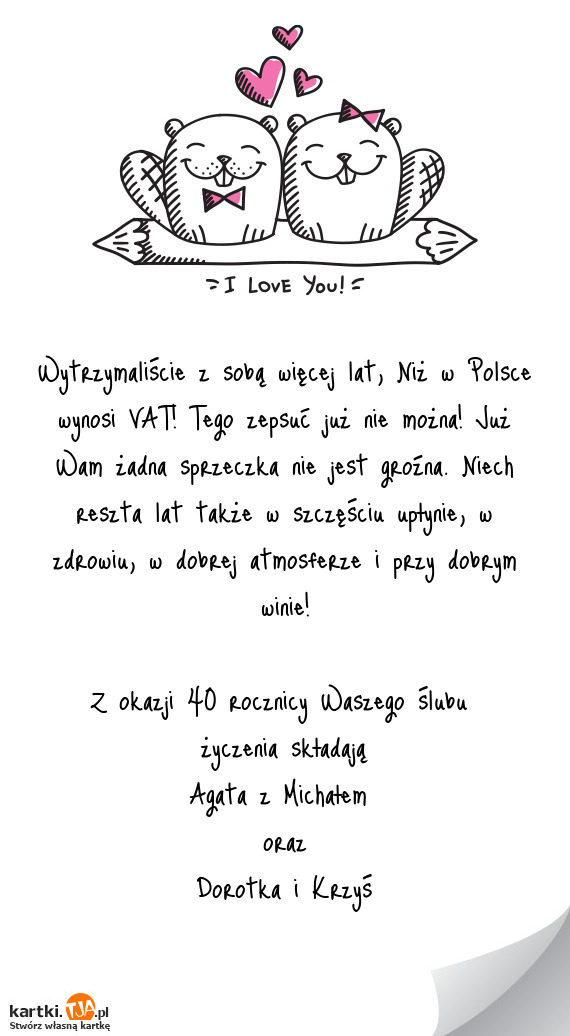 I LOVE YOU!
Wytrzymaliście z sobą więcej lat, Niż w Polsce
wynosi VAT! Tego zepsuć już nie można! Już
Wam żadna sprzeczka nie jest groźna. Niech
reszta lat także w szczęściu upłynie, w
zdrowiu, w dobrej atmosferze i przy dobrym
winie!
Z okazji 40 rocznicy Waszego ślubu
życzenia składają
Agata z Michałem
oraz
Dorotka i Krzyś
kartki.TJA.pl
Stwórz własną kartkę